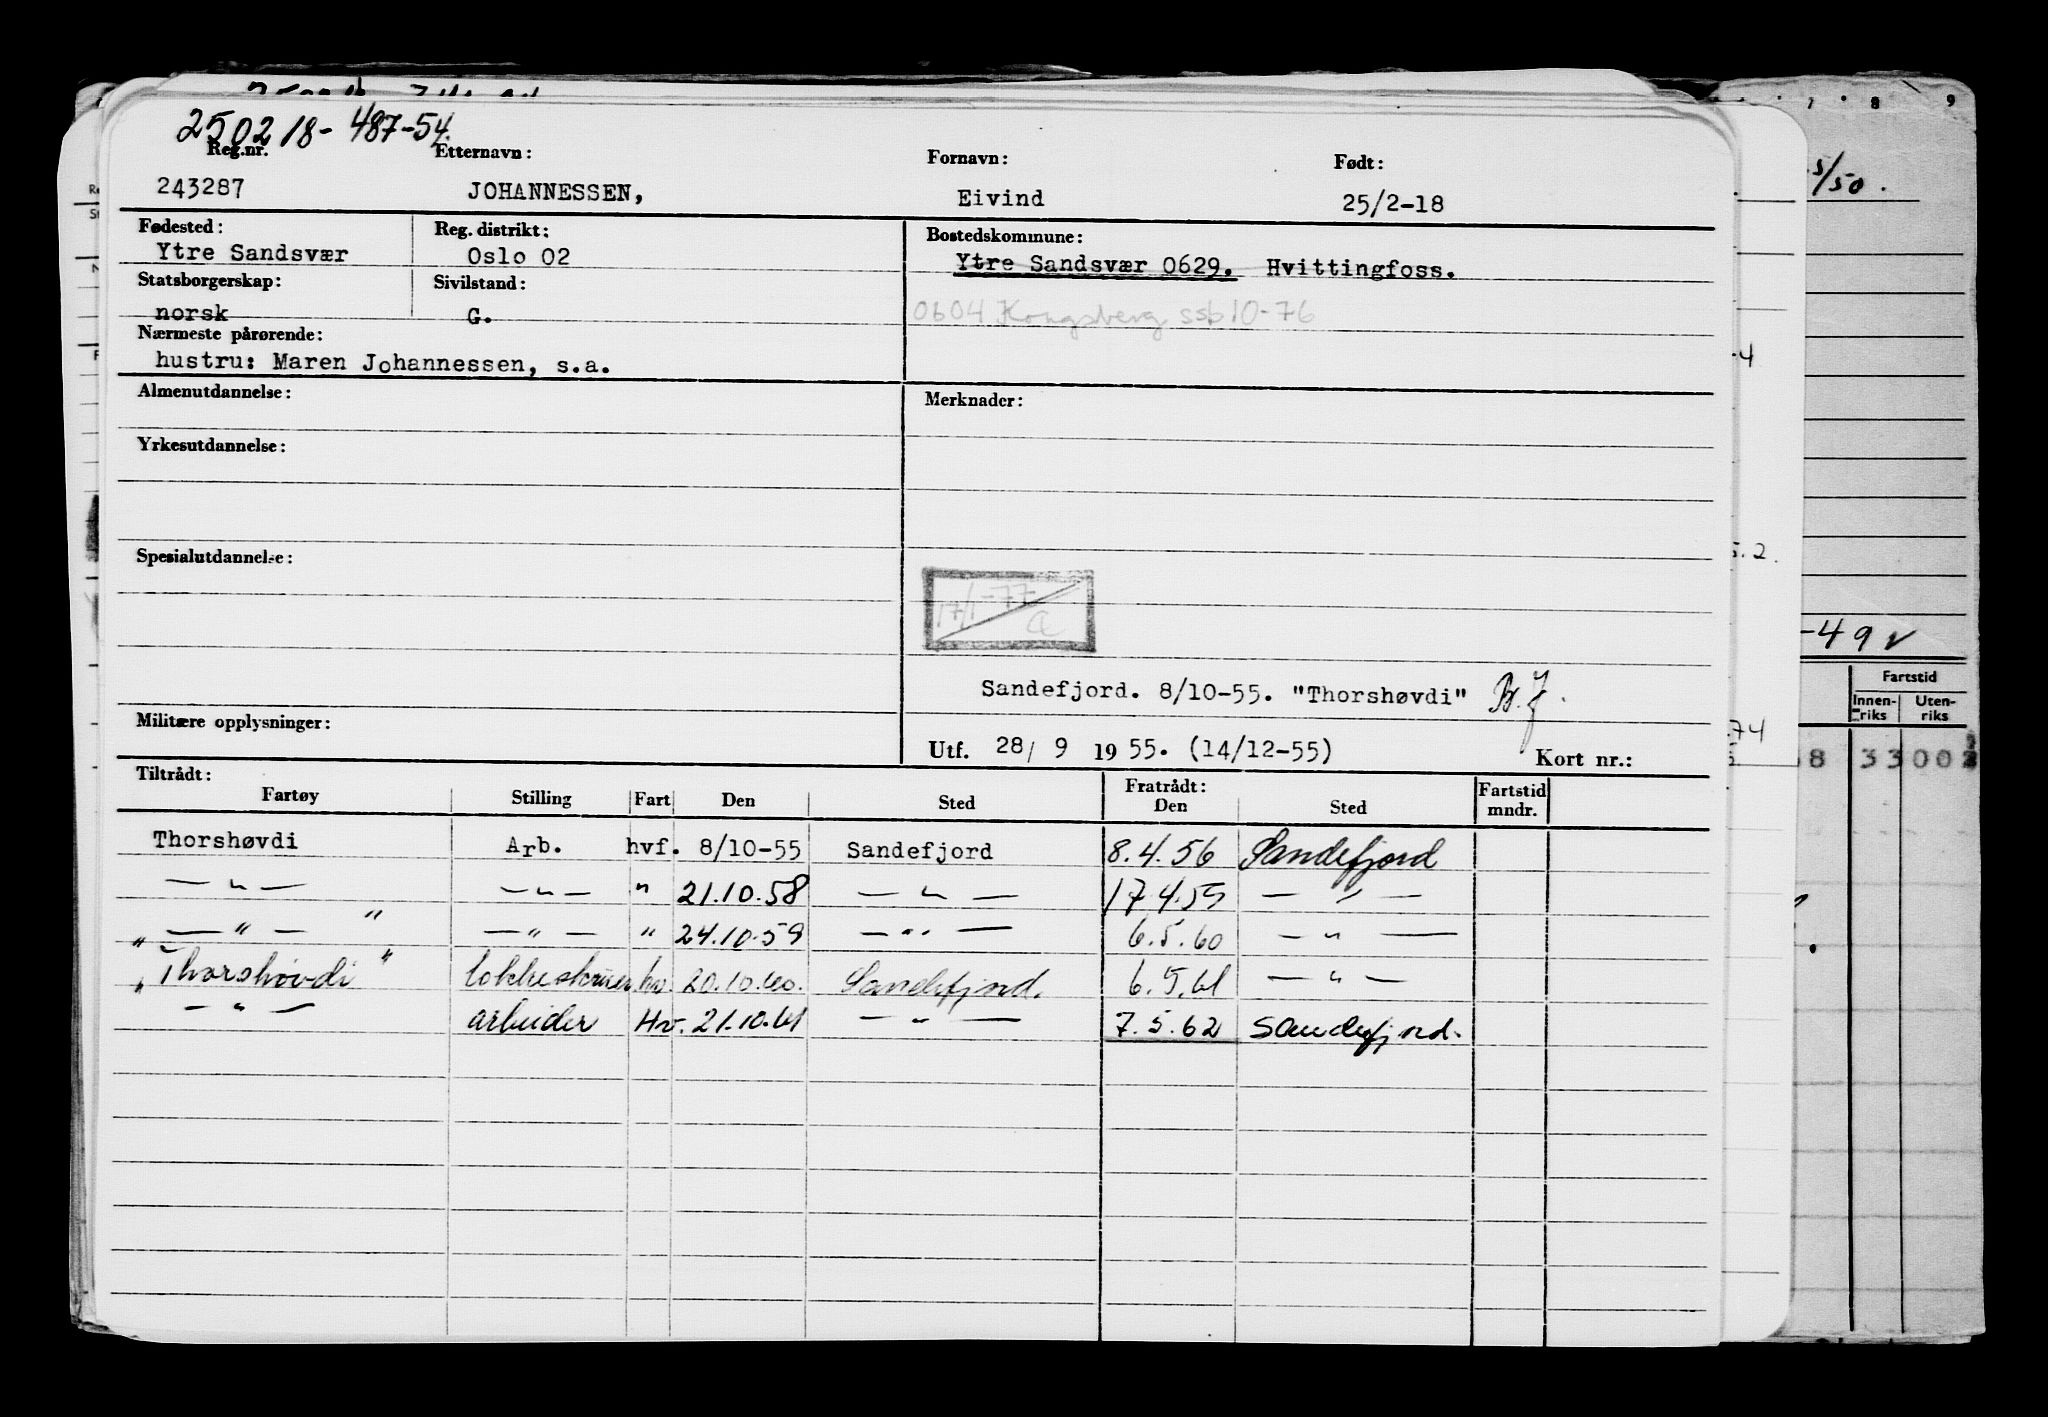 250218-487-54.
Reg.nr. Etternavn: Fornavn: Født:
243287 JOHANNESSEN, Eivind 25/2-18
Fødested: Reg. distrikt: Bostedskommune:
Ytre Sandsvær Oslo 02 Ytre Sandsvær 0629. Hvittingfoss.
Statsborgerskap: Sivilstand:
norsk G. 0604 Kongsberg ssb 10-76
Nærmeste pårørende:
hustru: Maren Johannessen, s.a.
Almenutdannelse: Merknader:
Yrkesutdannelse:
Spesialutdannelse:
17/1-77
Sandefjord. 8/10-55. "Thorshøvdi"
Militære opplysninger:
Utf. 28/ 9 1955. (14/12-55) Kort nr.:
Tiltrådt: Fratrådt:
Fartøy Stilling Fart Den Sted Den Sted Fartstid mndr.
Thorshøvdi Arb. hvf. 8/10-55 Sandefjord 8.4.56 Sandefjord
— " — — " — " 21.10.58 — " — 17.4.59 — " —
— " — " — " — " 24.10.59 — " — 6.5.60 — " —
" Thorshøvdi " hv. 20.10.60. Sandefjord. 6.5.61 — " —
— " — arbeider Hv. 21.10.61 — " — 7.5.62 Sandefjord.
7 8 9
5/50.
-4
5.2.
-49 v
Fartstid
Innen-riks Uten-riks
74
8 33 00